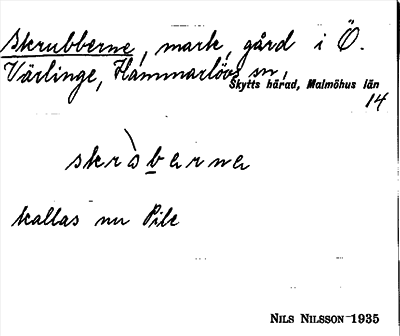 Skrubberne, mark, gård i Ö.
Värlinge, Hammarlövs sn,
Skytts härad, Malmöhus län
14
skràberna
kallas nu Pile
NILS NILSSON 1935